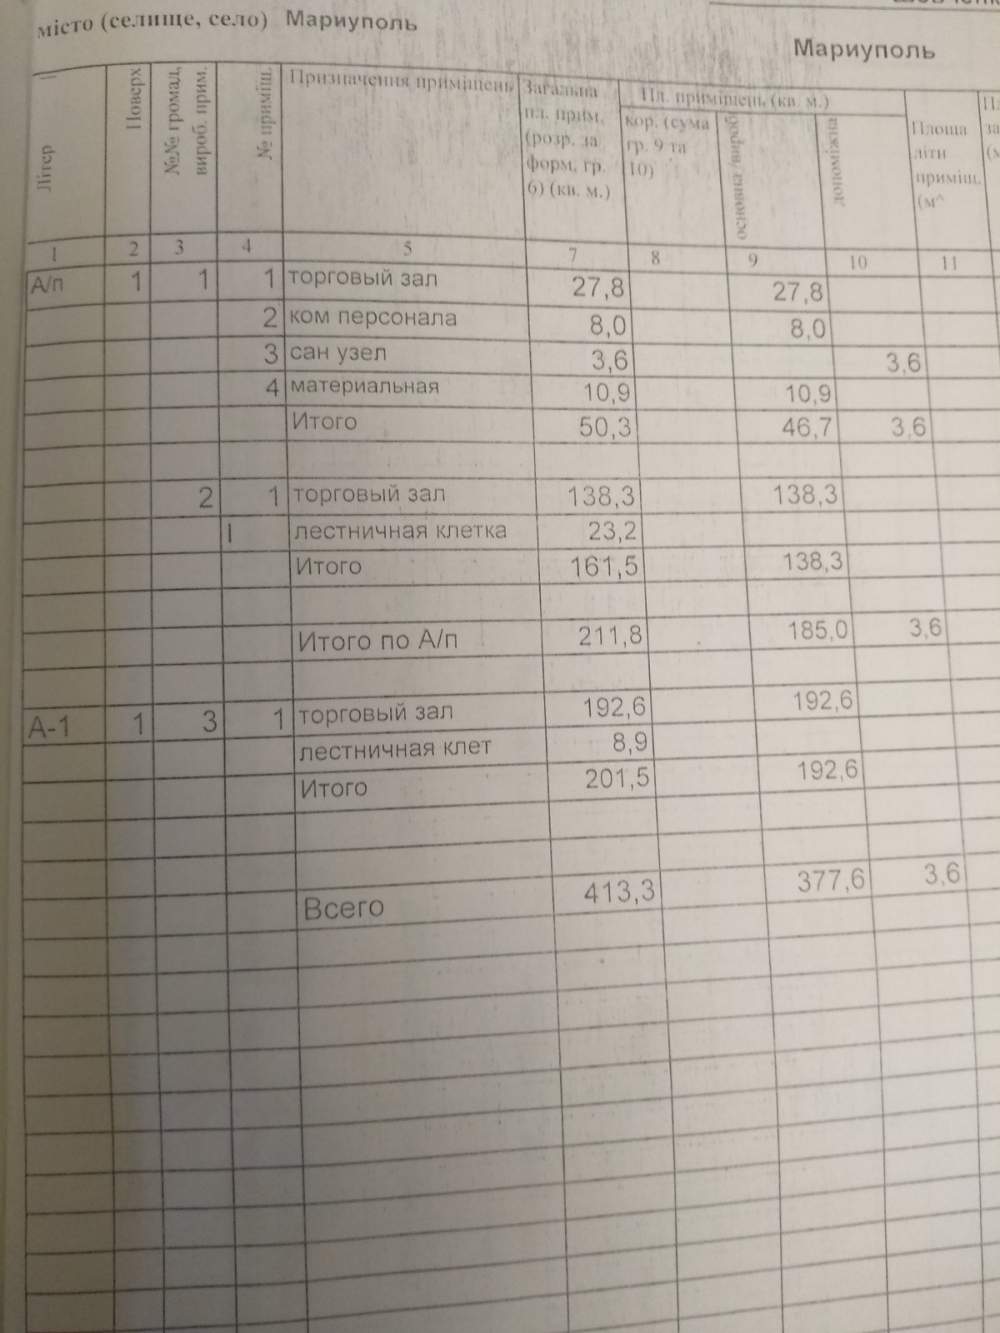 місто (селище, село) Мариуполь
Мариуполь
Літер
Поверх
№№ громад, вироб. прим.
№ приміщ.
Призначення приміщень
Загальна пл. прим. (розр. за форм, гр. 6) (кв. м.)
Пл. приміщень (кв. м.)
кор. (сума гр. 9 та 10)
основна /вироб
допоміжна
Площа літи приміщ. (м^
1 2 3 4 5 7 8 9 10 11
А/п 1 1 1 торговый зал 27,8 27,8
2 ком персонала 8,0 8,0
3 сан узел 3,6 3,6
4 материальная 10,9 10,9
Итого 50,3 46,7 3,6
2 1 торговый зал 138,3 138,3
I лестничная клетка 23,2
Итого 161,5 138,3
Итого по А/п 211,8 185,0 3,6
А-1 1 3 1 торговый зал 192,6 192,6
лестничная клет 8,9
Итого 201,5 192,6
Всего 413,3 377,6 3,6